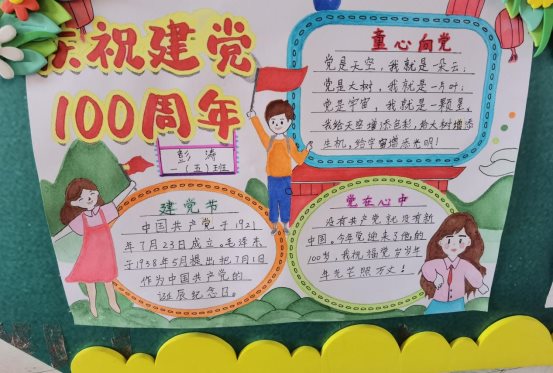 庆祝建党
100周年
彭涛
一(五)班
童心向党
党是天空，我就是一朵云；
党是大树，我就是一片叶；
党是宇宙，我就是一颗星，
我给天空增添色彩，给大树增添
生机，给宇宙增添光明！
建党节
中国共产党于1921
年7月23日成立。毛泽东
于1938年5月提出把7月1日
作为中国共产党的
诞辰纪念日。
党在心中
没有共产党就没有新
中国。今年党迎来了他的
100岁，我祝福党岁岁年
年光芒万丈！